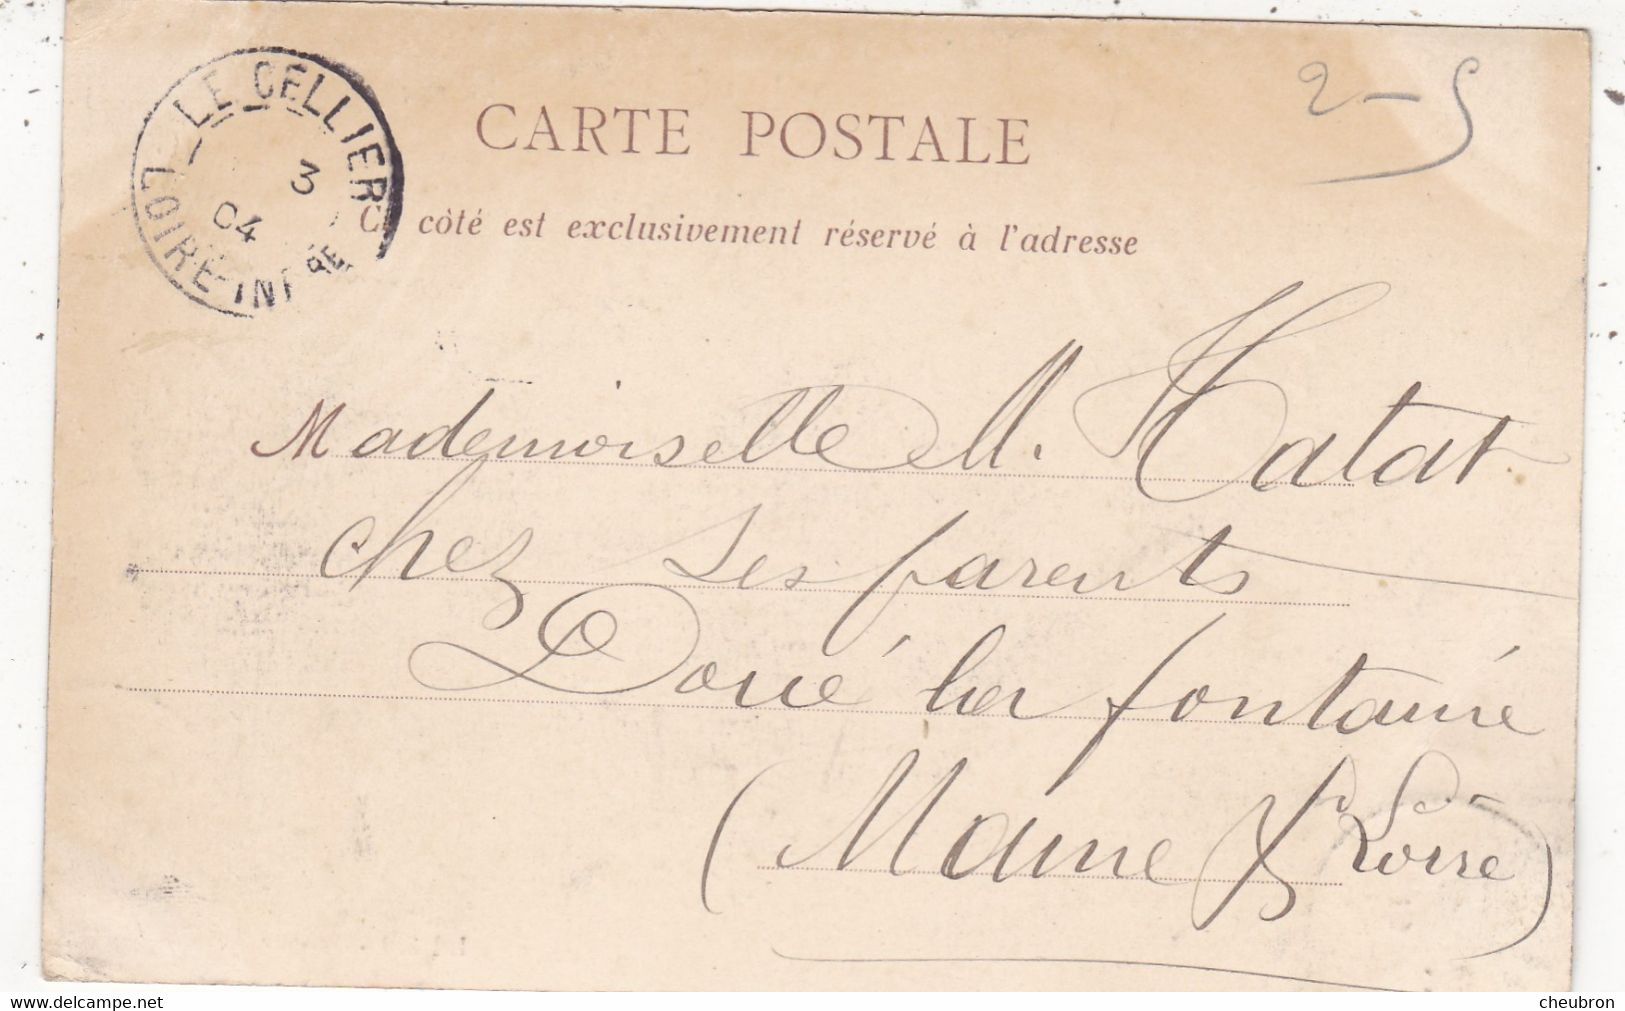 LE CELLIER
3
04
LOIRE-INFRE
2-5
CARTE POSTALE
Ce côté est exclusivement réservé à l'adresse
Mademoiselle M. Hatat
chez ses parents
Doué la fontaine
(Maine & Loire)
https://www.delcampe.net
cheubron